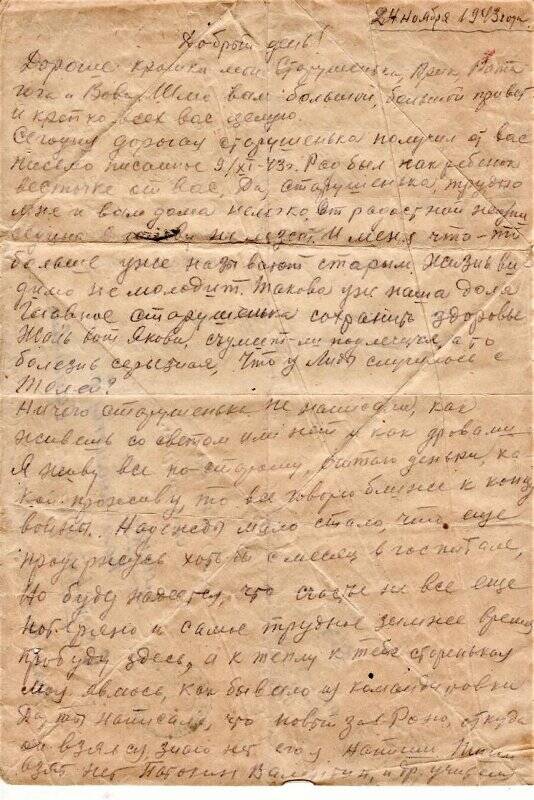 24 ноября 1943 года.
Добрый день!
Дорогие крошки мои Старушенька, Рита
Гога и Вова. Шлю вам большой, большой привет
и крепко всех вас целую.
Сегодня дорогая старушенька получил от вас
письмо писанное 9/XI-43г. Рад был как ребенок
весточке от вас. Да, старушенька, трудно
мне и вам дома нелегко от радостной жизни
седина в не лезет. И меня что-то
больше уже называют старым. Жизнь ви
димо не молодит. Такова уже наша доля
Главное старушенька сохранить здоровье
Жаль вот Якова, сумеет-ли подлечися, а то
болезнь серьезная, Что у Лиды случилось с
?
Ничего старушенька не написали, как
живешь со светом или нет и как дровами
Я живу все по-старому, считаю деньки, ка
кой проживу, то все говорю ближе к концу
войны. Надежды мало стало, что еще
продержусь хотьбы с месяц в госпитале,
Но буду надеется, что счастье не все еще
потеряно и самое трудное зимнее время
пробуду здесь, а к теплу к тебе старенькая
моя явлюсь, как бывало из командировки
Да, ты написала, что новый зав Роно, откуда
он взялся, знаю нет его, напиши
взят нет Потокин Валентин, и др. учителя